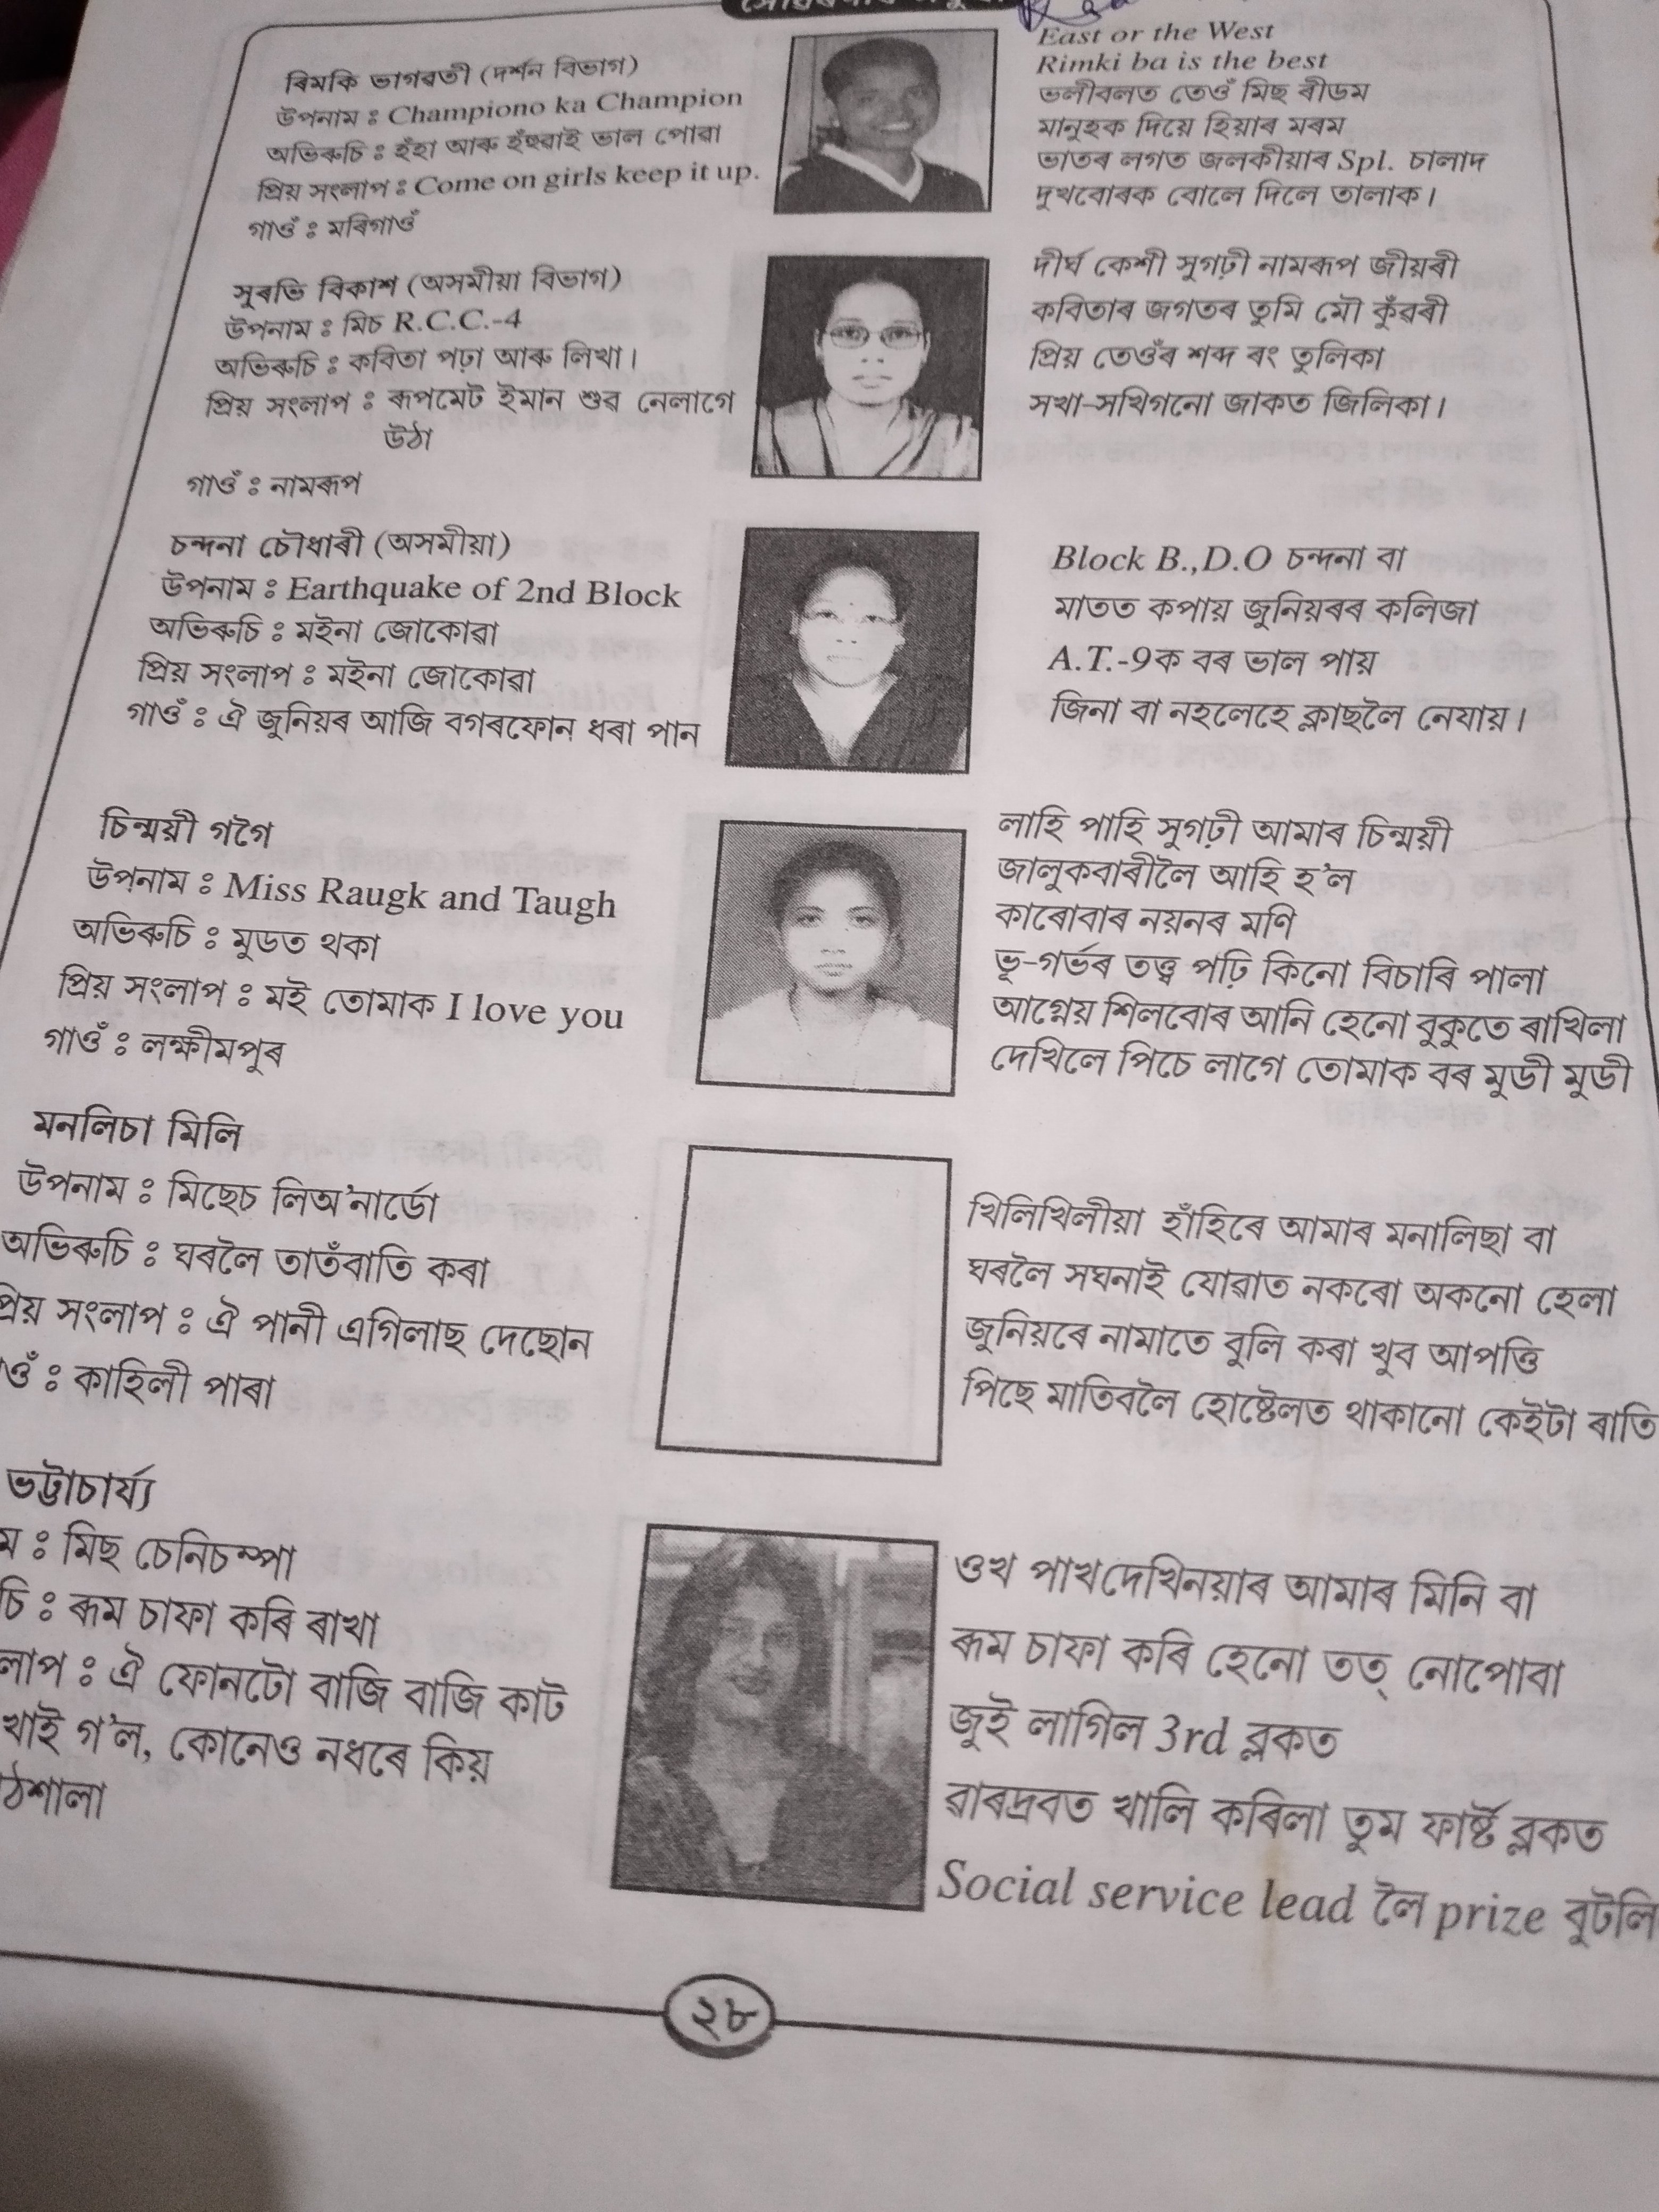 ৰিমকি ভাগৱতী (দৰ্শন বিভাগ)
উপনাম ঃ Championo ka Champion
অভিৰুচি ঃ হঁহা আৰু হঁহুৱাই ভাল পোৱা
প্ৰিয় সংলাপ ঃ Come on girls keep it up.
গাওঁ ঃ মৰিগাওঁ
East or the West
Rimki ba is the best
ভলীবলত তেওঁ মিছ ৰীডম
মানুহক দিয়ে হিয়াৰ মৰম
ভাতৰ লগত জলকীয়াৰ Spl. চালাদ
দুখবোৰক বোলে দিলে তালাক।
সুৰভি বিকাশ (অসমীয়া বিভাগ)
উপনাম ঃ মিচ R.C.C.-4
অভিৰুচি ঃ কবিতা পঢ়া আৰু লিখা।
প্ৰিয় সংলাপ ঃ ৰূপমেট ইমান শুৱ নেলাগে
উঠা
গাওঁ ঃ নামৰূপ
দীৰ্ঘ কেশী সুগঢ়ী নামৰূপ জীয়ৰী
কবিতাৰ জগতৰ তুমি মৌ কুঁৱৰী
প্ৰিয় তেওঁৰ শব্দ ৰং তুলিকা
সখা-সখিগনো জাকত জিলিকা।
চন্দনা চৌধাৰী (অসমীয়া)
উপনাম ঃ Earthquake of 2nd Block
অভিৰুচি ঃ মইনা জোকোৱা
প্ৰিয় সংলাপ ঃ মইনা জোকোৱা
গাওঁ ঃ ঐ জুনিয়ৰ আজি বগৰফোন ধৰা পান
Block B.,D.O চন্দনা বা
মাতত কপায় জুনিয়ৰৰ কলিজা
A.T.-9ক বৰ ভাল পায়
জিনা বা নহলেহে ক্লাছলৈ নেযায়।
চিন্ময়ী গগৈ
উপনাম ঃ Miss Raugk and Taugh
অভিৰুচি ঃ মুডত থকা
প্ৰিয় সংলাপ ঃ মই তোমাক I love you
গাওঁ ঃ লক্ষীমপুৰ
লাহি পাহি সুগঢ়ী আমাৰ চিন্ময়ী
জালুকবাৰীলৈ আহি হ'ল
কাৰোবাৰ নয়নৰ মণি
ভূ-গৰ্ভৰ তত্ত্ব পঢ়ি কিনো বিচাৰি পালা
আগ্নেয় শিলবোৰ আনি হেনো বুকুতে ৰাখিলা
দেখিলে পিচে লাগে তোমাক বৰ মুডী মুডী
মনলিচা মিলি
উপনাম ঃ মিছেচ লিঅ'নাৰ্ডো
অভিৰুচি ঃ ঘৰলৈ তাতঁবাতি কৰা
প্ৰিয় সংলাপ ঃ ঐ পানী এগিলাছ দেছোন
ওঁ ঃ কাহিলী পাৰা
খিলিখিলীয়া হাঁহিৰে আমাৰ মনালিছা বা
ঘৰলৈ সঘনাই যোৱাত নকৰো অকনো হেলা
জুনিয়ৰে নামাতে বুলি কৰা খুব আপত্তি
পিছে মাতিবলৈ হোষ্টেলত থাকানো কেইটা ৰাতি
ভট্টাচাৰ্য্য
ম ঃ মিছ চেনিচম্পা
চি ঃ ৰূম চাফা কৰি ৰাখা
লাপ ঃ ঐ ফোনটো বাজি বাজি কাট
খাই গ'ল, কোনেও নধৰে কিয়
ঠশালা
ওখ পাখদেখিনয়াৰ আমাৰ মিনি বা
ৰূম চাফা কৰি হেনো তত্ নোপোবা
জুই লাগিল 3rd ব্লকত
ৱাৰদ্ৰবত খালি কৰিলা তুম ফাৰ্ষ্ট ব্লকত
Social service lead লৈ prize বুটলি
২৮